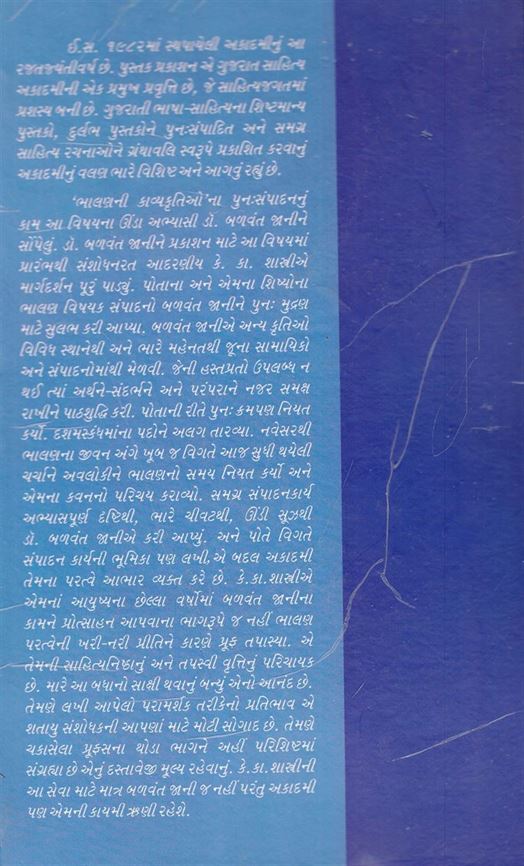 ઈ.સ. ૧૯૮૨માં સ્થપાયેલી અકાદમીનું આ
રજતજયંતીવર્ષ છે. પુસ્તક પ્રકાશન એ ગુજરાત સાહિત્ય
અકાદમીની એક પ્રમુખ પ્રવૃત્તિ છે, જે સાહિત્યજગતમાં
પ્રશસ્ય બની છે. ગુજરાતી ભાષા-સાહિત્યના શિષ્ટમાન્ય
પુસ્તકો, દુર્લભ પુસ્તકોને પુનઃસંપાદિત અને સમગ્ર
સાહિત્ય રચનાઓને ગ્રંથાવલિ સ્વરૂપે પ્રકાશિત કરવાનું
અકાદમીનું વલણ ભારે વિશિષ્ટ અને આગવું રહ્યું છે.
'ભાલણની કાવ્યકૃતિઓ'ના પુનઃસંપાદનનું
કામ આ વિષયના ઊંડા અભ્યાસી ડૉ. બળવંત જાનીને
સોંપેલું. ડૉ. બળવંત જાનીને પ્રકાશન માટે આ વિષયમાં
પ્રારંભથી સંશોધનરત આદરણીય કે. કા. શાસ્ત્રીએ
માર્ગદર્શન પૂરું પાડ્યું. પોતાના અને એમના શિષ્યોના
ભાલણ વિષયક સંપાદનો બળવંત જાનીને પુનઃ મુદ્રણ
માટે સુલભ કરી આપ્યા. બળવંત જાનીએ અન્ય કૃતિઓ
વિવિધ સ્થાનેથી અને ભારે મહેનતથી જૂના સામાયિકો
અને સંપાદનોમાંથી મેળવી. જેની હસ્તપ્રતો ઉપલબ્ધ ન
થઈ ત્યાં અર્થને-સંદર્ભને અને પરંપરાને નજર સમક્ષ
રાખીને પાઠશુદ્ધિ કરી. પોતાની રીતે પુનઃ ક્રમપણ નિયત
કર્યો. દશમસ્કંધમાંના પદોને અલગ તારવ્યા. નવેસરથી
ભાલણના જીવન અંગે ખુબ જ વિગતે આજ સુધી થયેલી
ચર્ચાને અવલોકીને ભાલણનો સમય નિયત કર્યો અને
એમના કવનનો પરિચય કરાવ્યો. સમગ્ર સંપાદનકાર્ય
અભ્યાસપૂર્ણ દૃષ્ટિથી, ભારે ચીવટથી, ઊંડી સૂઝથી
ડૉ. બળવંત જાનીએ કરી આપ્યું. અને પોતે વિગતે
સંપાદન કાર્યની ભૂમિકા પણ લખી, એ બદલ અકાદમી
તેમના પરત્વે આભાર વ્યક્ત કરે છે. કે.કા.શાસ્ત્રીએ
એમનાં આયુષ્યના છેલ્લા વર્ષોમાં બળવંત જાનીના
કામને પ્રોત્સાહન આપવાના ભાગરૂપે જ નહીં ભાલણ
પરત્વેની ખરી-નરી પ્રીતિને કારણે પ્રૂફ તપાસ્યા. એ
તેમની સાહિત્યનિષ્ઠાનું અને તપસ્વી વૃત્તિનું પરિચાયક
છે. મારે આ બધાનો સાક્ષી થવાનું બન્યું એનો આનંદ છે.
તેમણે લખી આપેલો પરામર્શક તરીકેનો પ્રતિભાવ એ
શતાયુ સંશોધકની આપણાં માટે મોટી સોગાદ છે. તેમણે
ચકાસેલા પ્રૂફ્સના થોડા ભાગને અહીં પરિશિષ્ટમાં
સંગ્રહ્યા છે એનું દસ્તાવેજી મૂલ્ય રહેવાનું. કે.કા.શાસ્ત્રીની
આ સેવા માટે માત્ર બળવંત જાની જ નહીં પરંતુ અકાદમી
પણ એમની કાયમી ઋણી રહેશે.